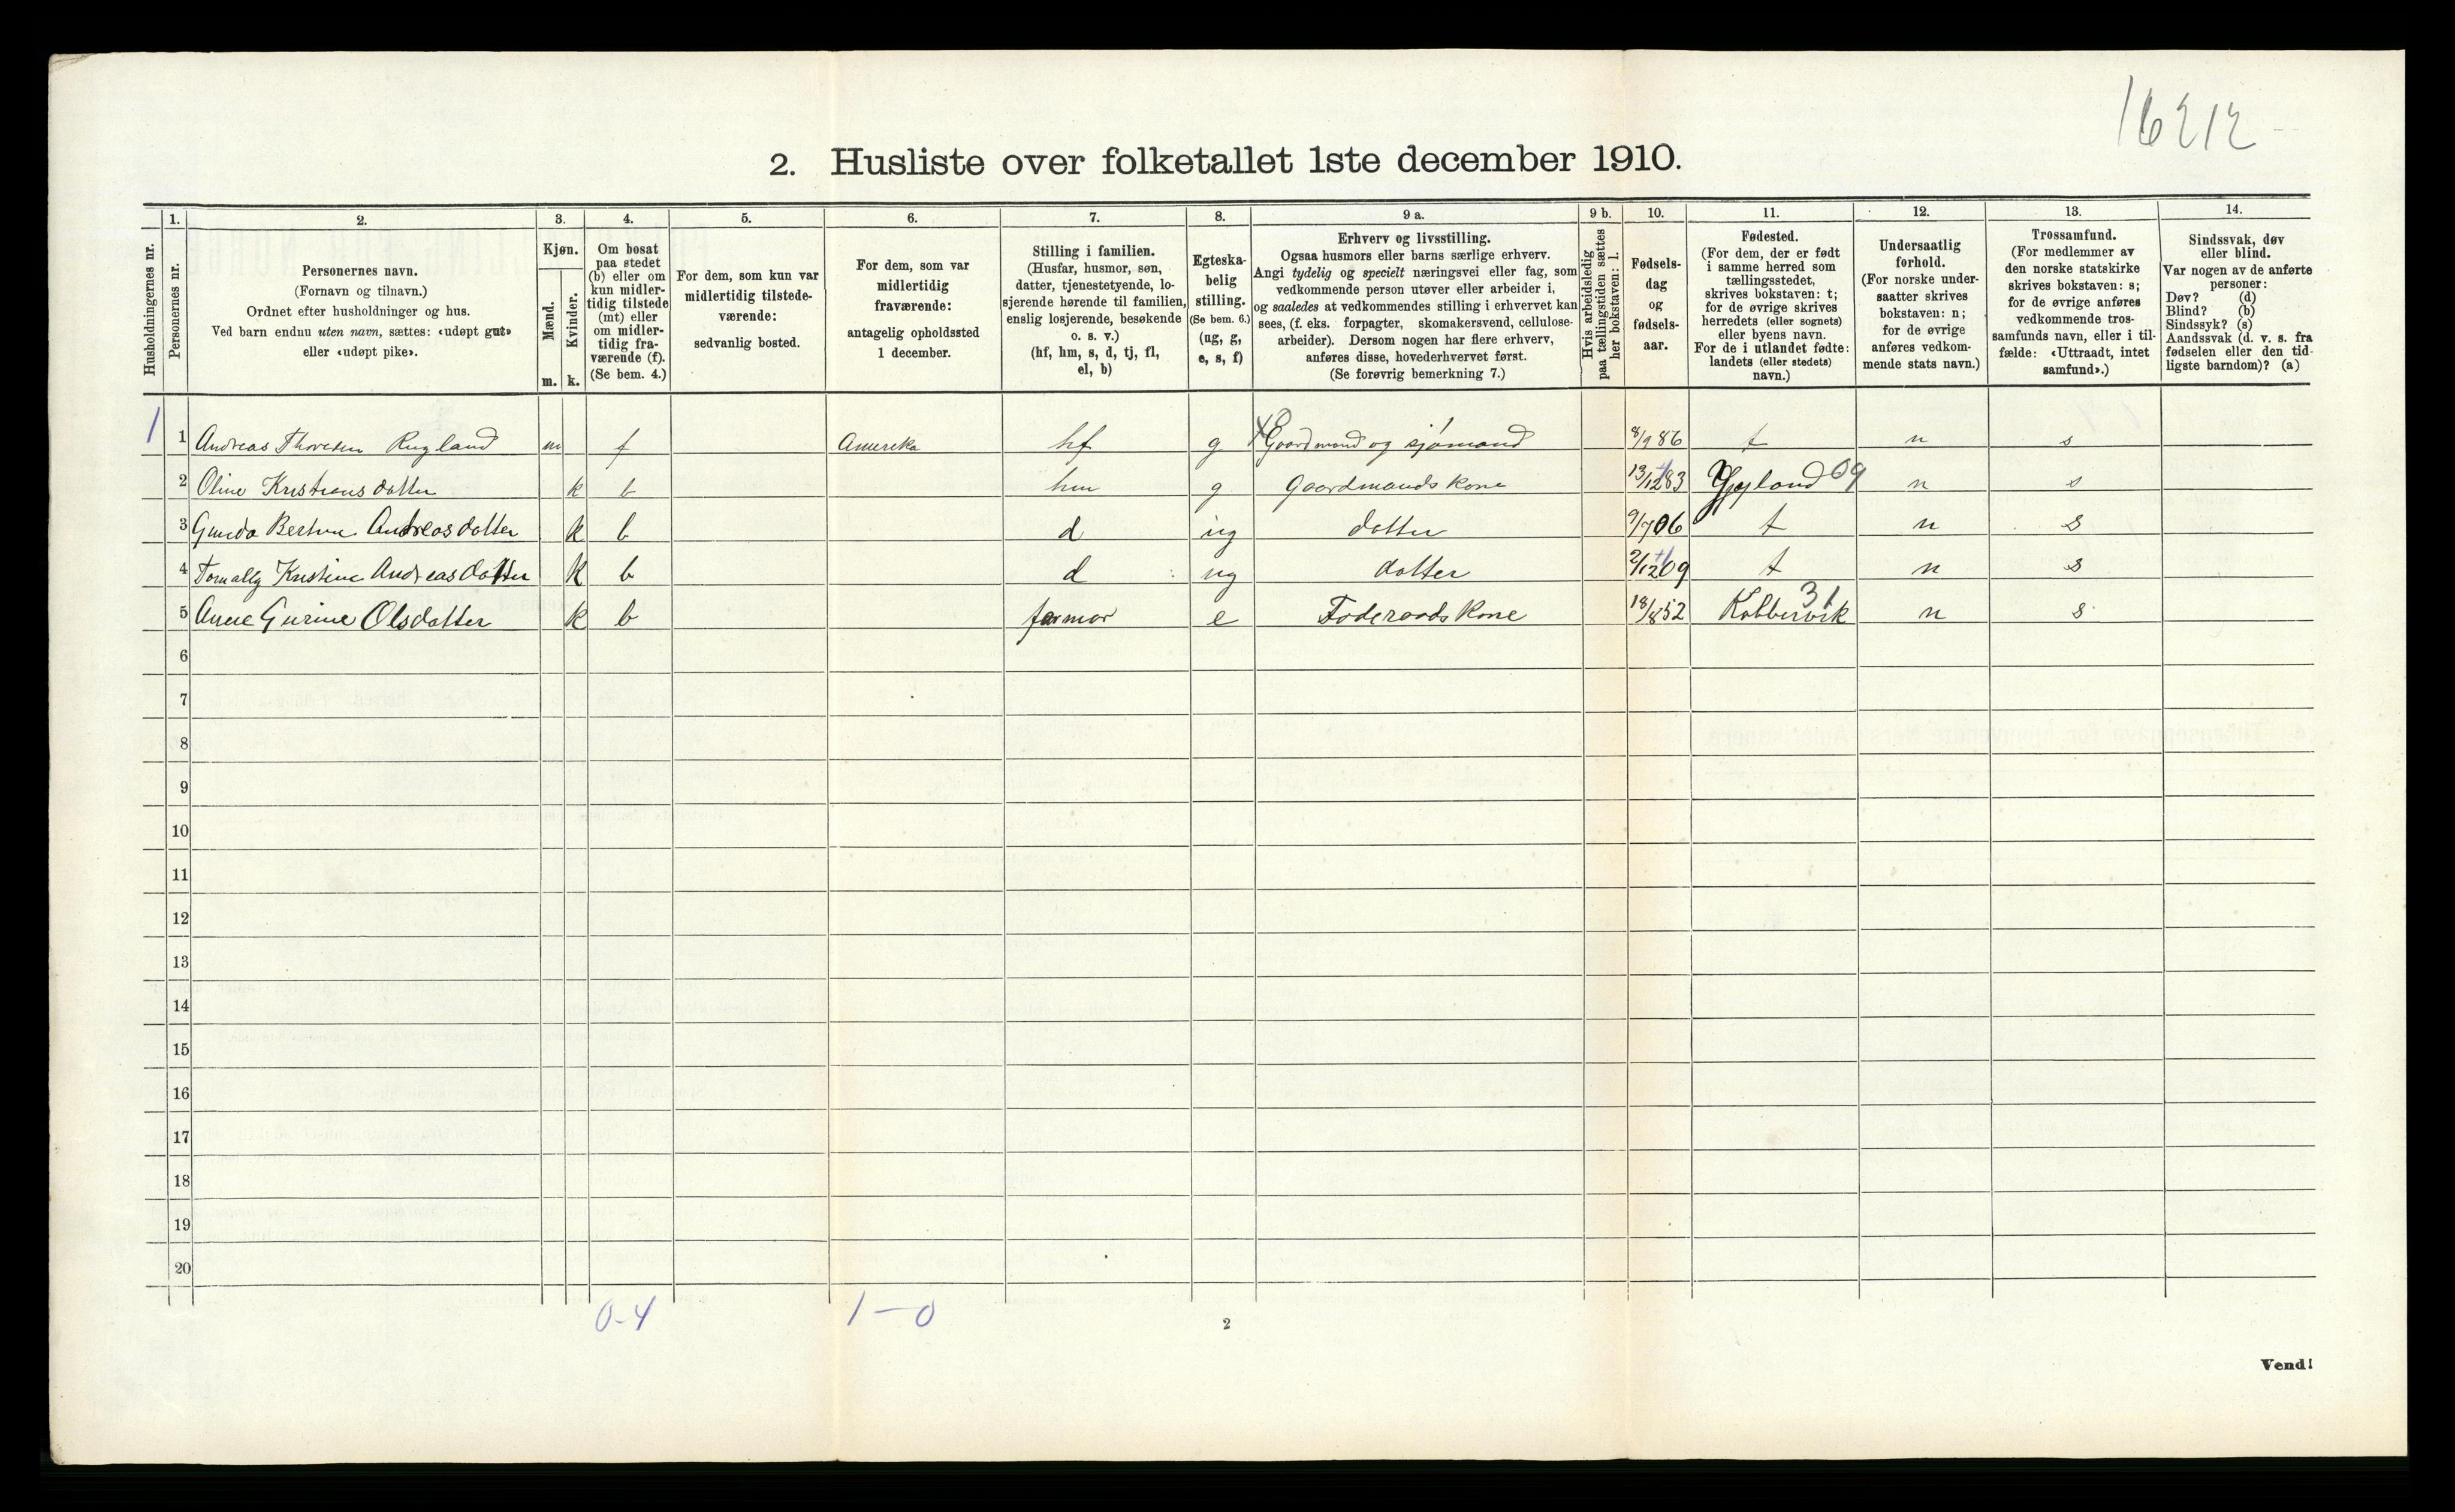 16212
2. Husliste over folketallet 1ste december 1910.
Husholdningernes nr.
1.
Personernes nr.
2.
Personernes navn.
(Fornavn og tilnavn.)
Ordnet efter husholdninger og hus.
Ved barn endnu uten navn, sættes: «udøpt gut»
eller «udøpt pike».
3.
Kjøn.
Mænd.
Kvinder.
m. k.
4.
Om bosat
paa stedet
(b) eller om
kun midler-
tidig tilstede
(mt) eller
om midler-
tidig fra-
værende (f).
(Se bem. 4.)
5.
For dem, som kun var
midlertidig tilstede-
værende:
sedvanlig bosted.
6.
For dem, som var
midlertidig
fraværende:
antagelig opholdssted
1 december.
7.
Stilling i familien.
(Husfar, husmor, søn,
datter, tjenestetyende, lo-
sjerende hørende til familien,
enslig losjerende, besøkende
o. s. v.)
(hf, hm, s, d, tj, fl,
el, b)
8.
Egteska-
belig
stilling.
(Se bem. 6.)
(ug, g,
e, s, f)
9 a.
Erhverv og livsstilling.
Ogsaa husmors eller barns særlige erhverv.
Angi tydelig og specielt næringsvei eller fag, som
vedkommende person utøver eller arbeider i,
og saaledes at vedkommendes stilling i erhvervet kan
sees, (f. eks. forpagter, skomakersvend, cellulose-
arbeider). Dersom nogen har flere erhverv,
anføres disse, hovederhvervet først.
(Se forøvrig bemerkning 7.)
9 b.
Hvis arbeidsledig
paa tællingstiden sættes
her bokstaven: l.
10.
Fødsels-
dag
og
fødsels-
aar.
11.
Fødested.
(For dem, der er født
i samme herred som
tællingsstedet,
skrives bokstaven: t;
for de øvrige skrives
herredets (eller sognets)
eller byens navn.
For de i utlandet fødte:
landets (eller stedets)
navn.)
12.
Undersaatlig
forhold.
(For norske under-
saatter skrives
bokstaven: n;
for de øvrige
anføres vedkom-
mende stats navn.)
13.
Trossamfund.
(For medlemmer av
den norske statskirke
skrives bokstaven: s;
for de øvrige anføres
vedkommende tros-
samfunds navn, eller i til-
fælde: «Uttraadt, intet
samfund».)
14.
Sindssvak, døv
eller blind.
Var nogen av de anførte
personer:
Døv? (d)
Blind? (b)
Sindssyk? (s)
Aandssvak (d. v. s. fra
fødselen eller den tid-
ligste barndom)? (a)
1 1 Andreas Thoresen Rugland m f Amereka hf g Gaardmand og sjómand 8/9 86 t n s
2 Oline Kristiansdatter k b hm g Gaardmands kone 13/12 83 Gyland 09 n s
3 Gunda Bertine Andreasdatter k b d ug datter 9/7 06 t n s
4 Tomally Kristine Andreasdatter k b d ug datter 2/12 09 t n s
5 Anne Gurine Olsdatter k b farmor e Foderaads Kone 18/8 52 Kobbervik 31 n s
6
7
8
9
10
11
12
13
14
15
16
17
18
19
20
0-4 1-0
2
Vend!